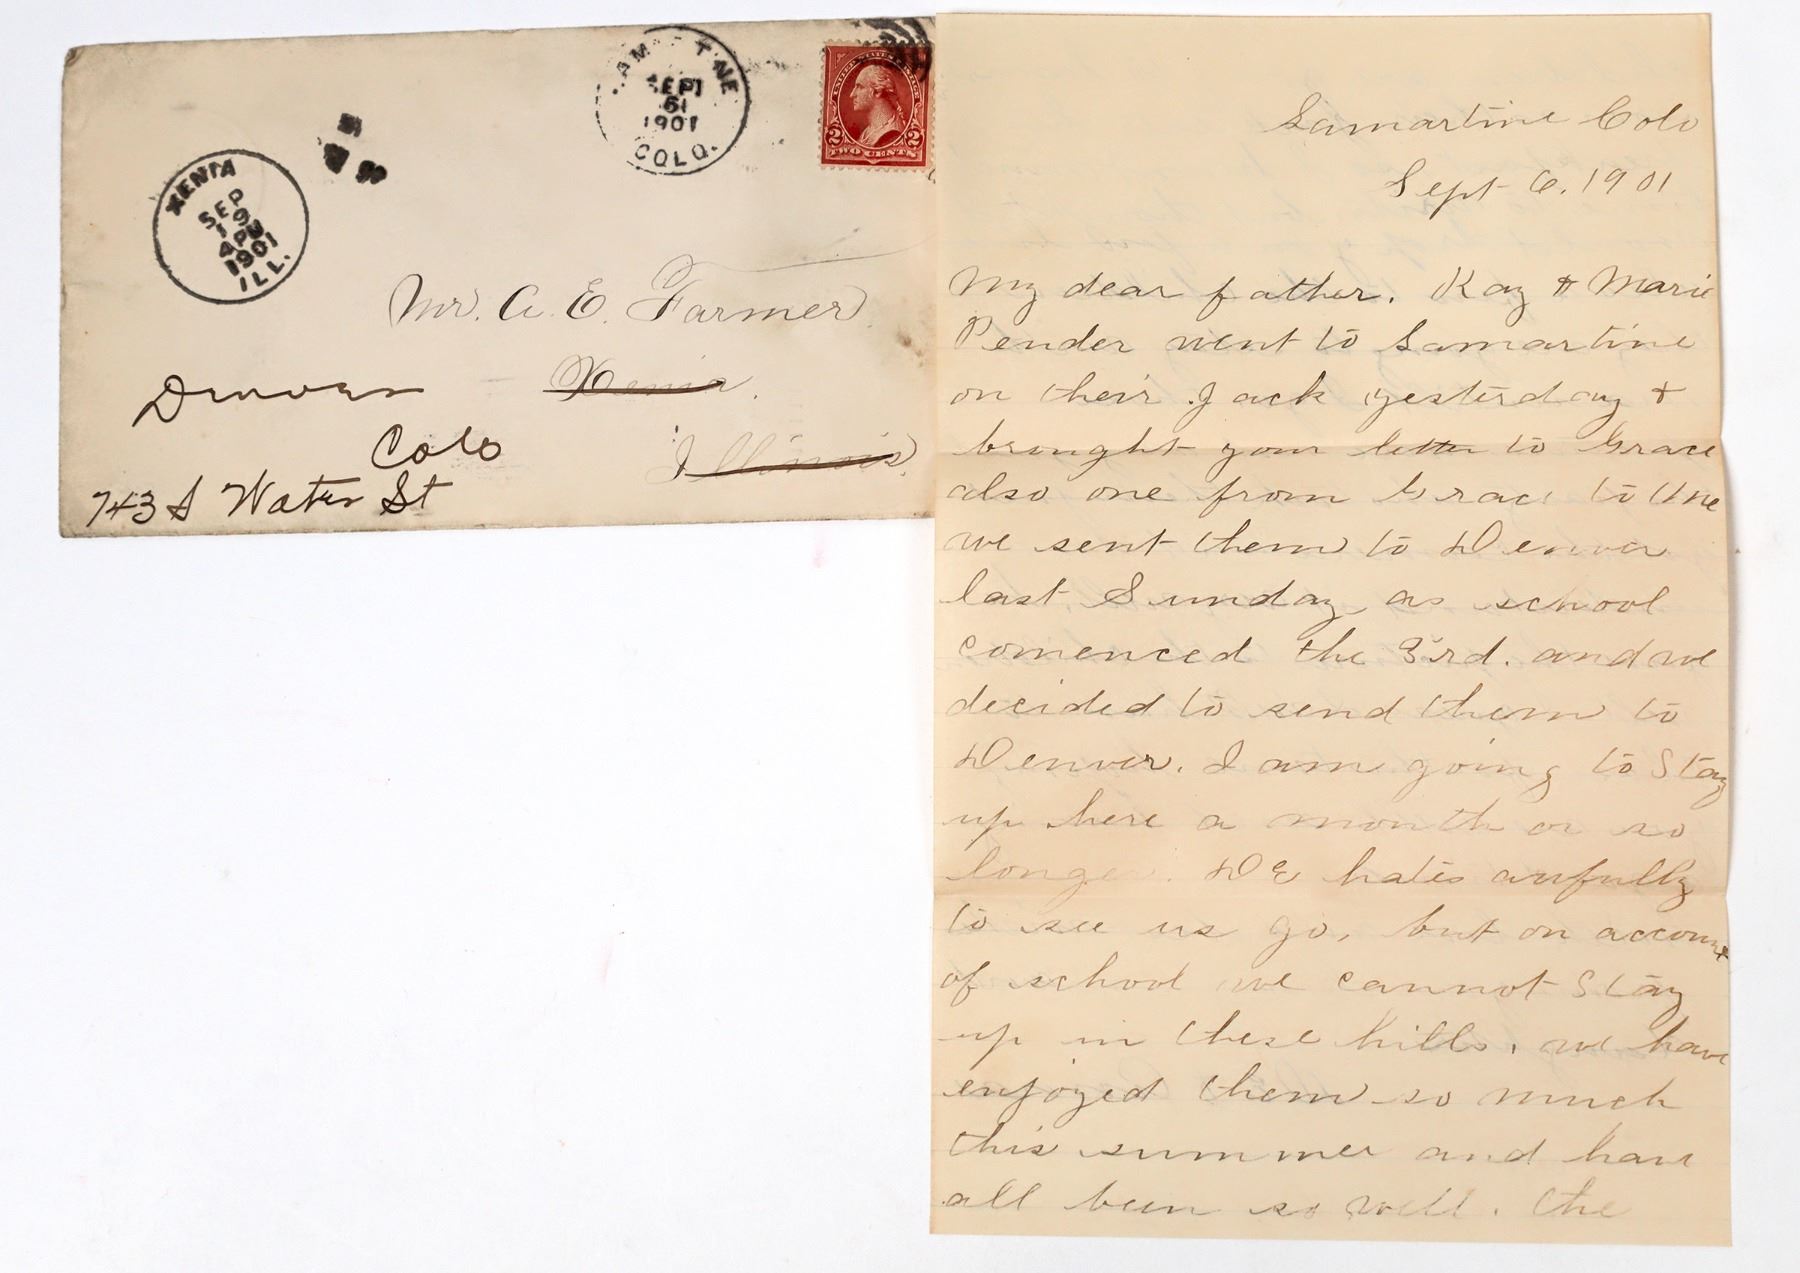 XENIA
SEP
19
4 PM
1901
ILL.
SEPT
6
1901
COLO.
UNITED STATES
2 2
TWO CENTS
Mr. A. E. Farmer
Xenia.
Illinois.
Denver
Colo
743 S Water St
Lamartine Colo
Sept 6. 1901
My dear father. Ray & Marie
Pender went to Lamartine
on their Jack yesterday &
brought your letter to Grace
also one from Grace to me
we sent them to Denver
last Sunday as school
comenced the 3rd. and we
decided to send them to
Denver. I am going to Stay
up here a month or so
longer. DE hates awfully
to see us go, but on account
of school we cannot Stay
up in these hills. we have
enjoyed them so much
this summer and have
all been so well. The